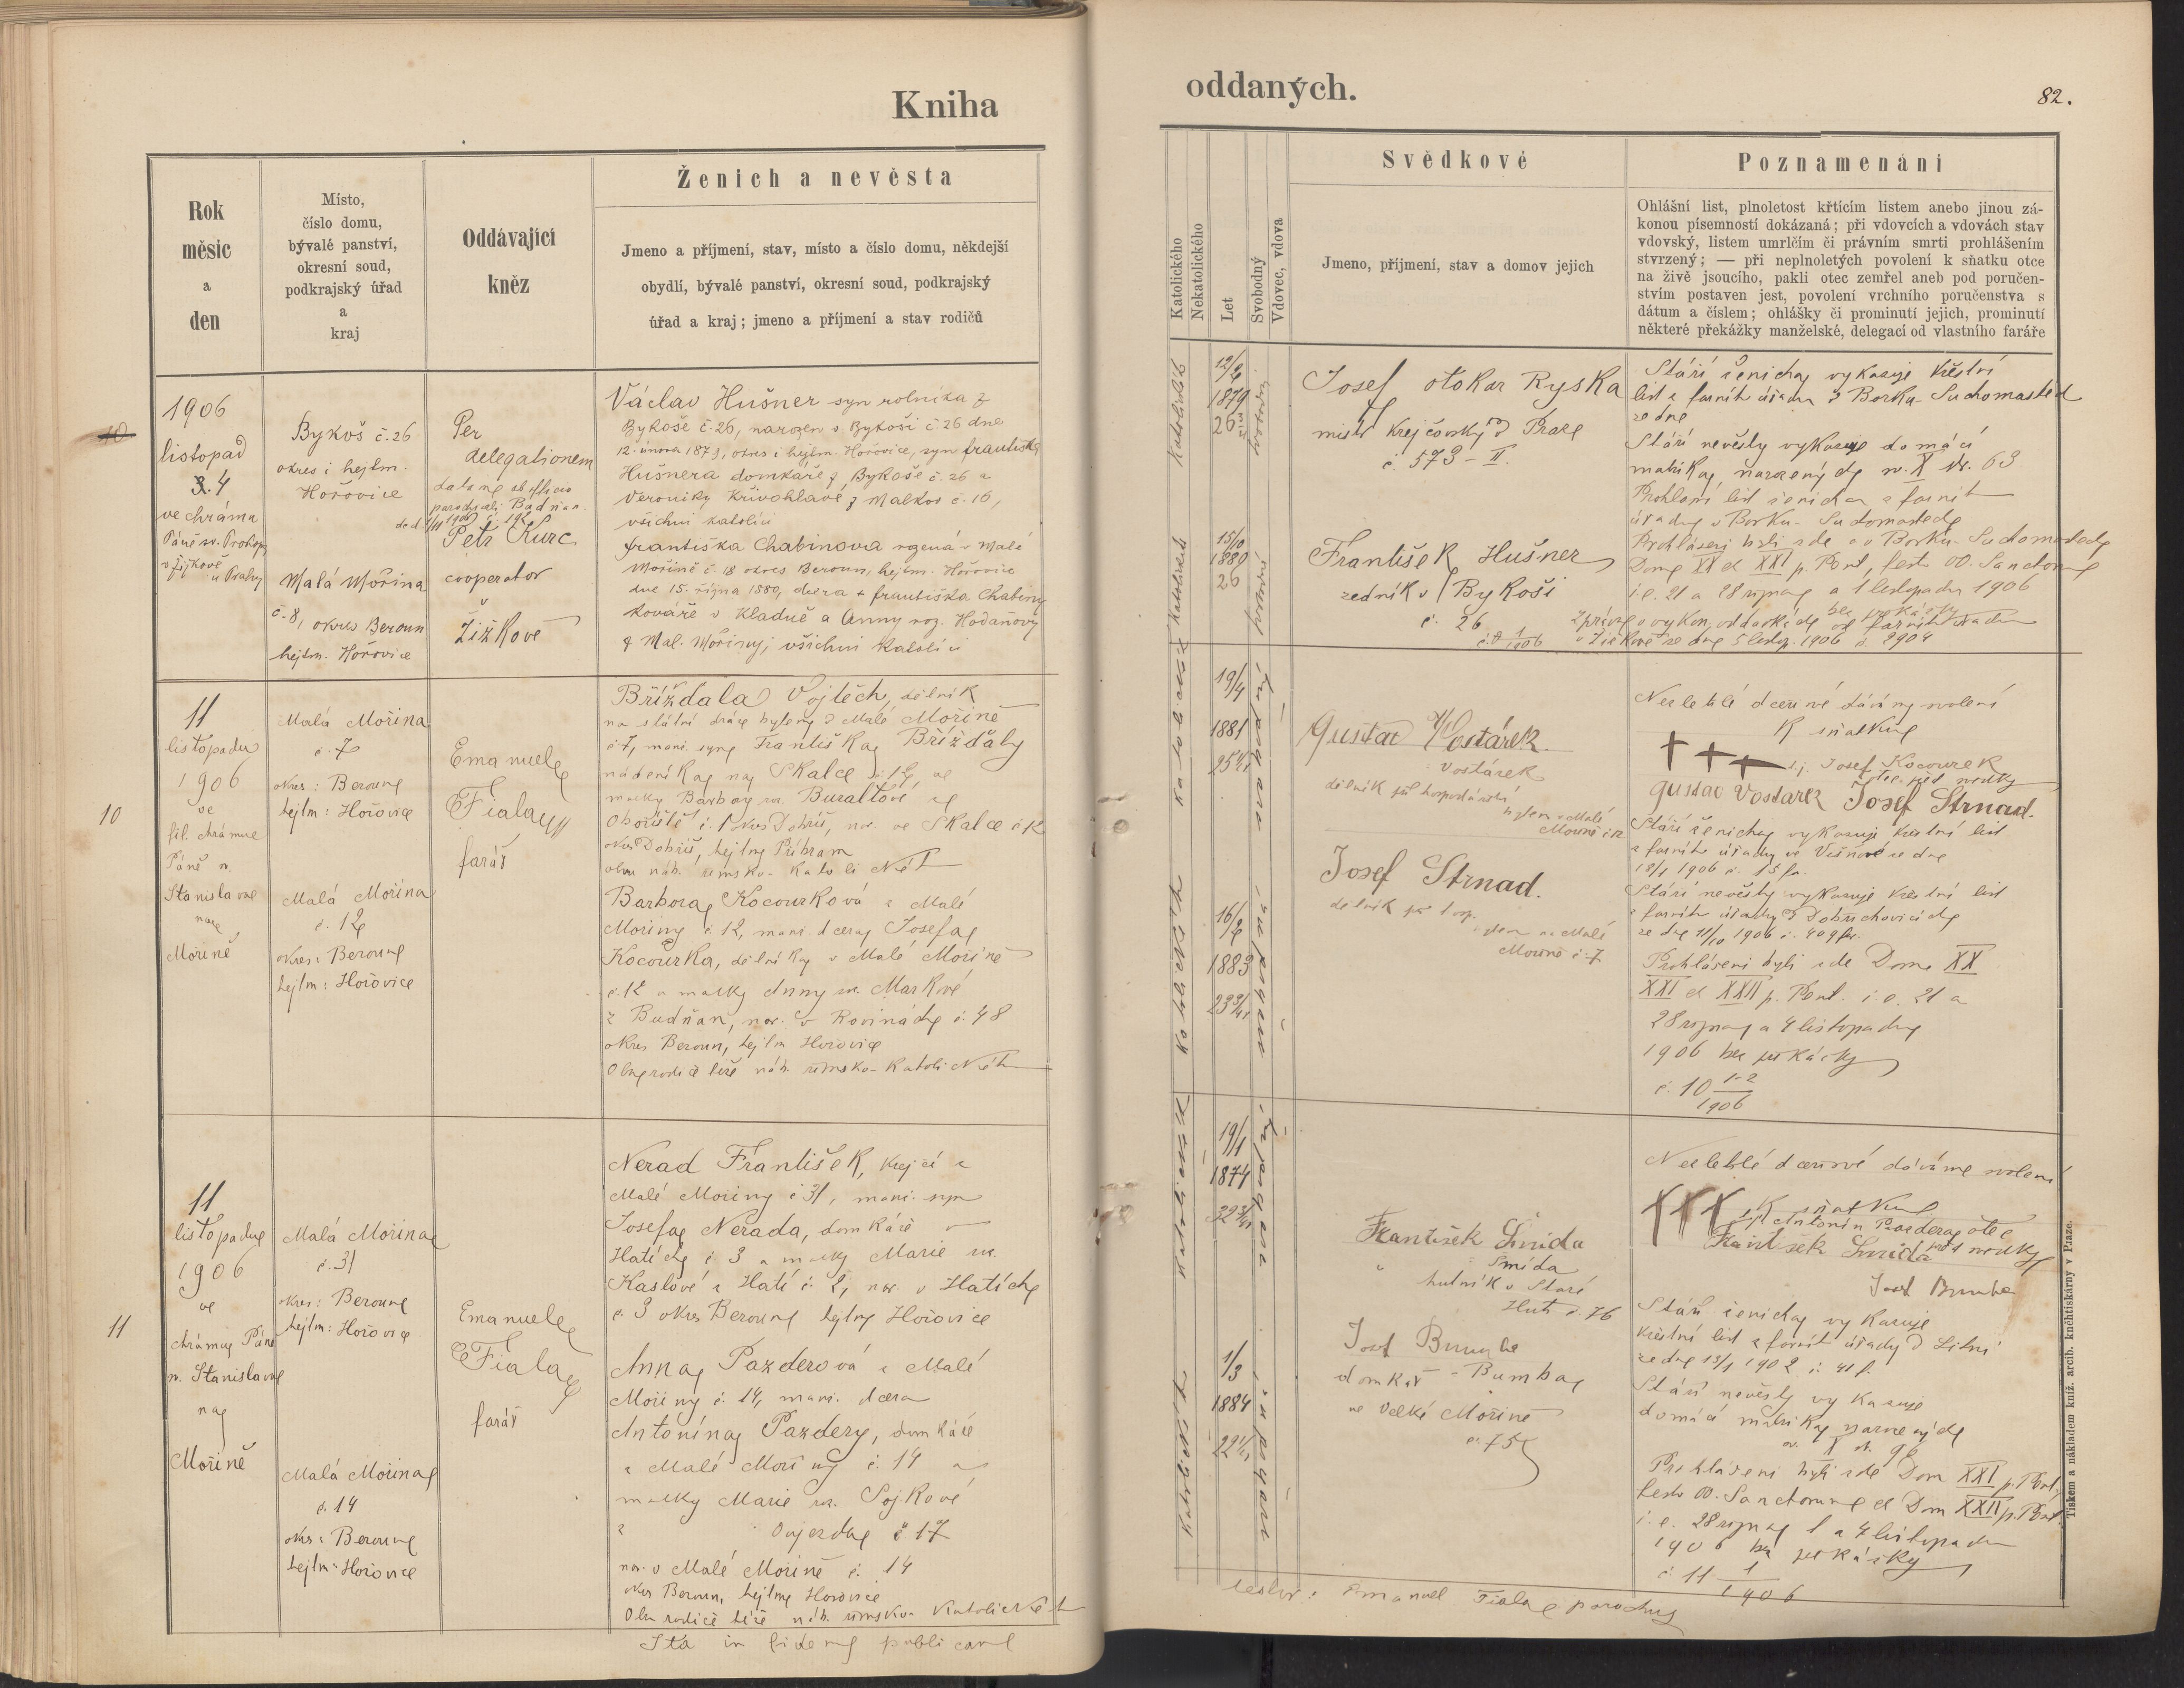 Kniha
oddaných.
82.
Rok
měsíc
a
den
Místo,
číslo domu,
bývalé panství,
okresní soud,
podkrajský úřad
a
kraj
Oddávající
kněz
Ženich a nevěsta
Jmeno a příjmení, stav, místo a číslo domu, někdejší
obydlí, bývalé panství, okresní soud, podkrajský
úřad a kraj; jmeno a příjmení a stav rodičů
Katolického
Nekatolického
Let
Svobodný
Vdovec, vdova
Svědkové
Jmeno, příjmení, stav a domov jejich
Poznamenání
Ohlášní list, plnoletost křtícím listem anebo jinou zá-
konou písemností dokázaná; při vdovcích a vdovách stav
vdovský, listem umrlčím či právním smrti prohlášením
stvrzený; — při neplnoletých povolení k sňatku otce
na živě jsoucího, pakli otec zemřel aneb pod poručen-
stvím postaven jest, povolení vrchního poručenstva s
dátum a číslem; ohlášky či prominutí jejich, prominutí
některé překážky manželské, delegací od vlastního faráře
10
1906
listopad
3. 4
ve chrámu
Páně sv. Prokopa
v Žižkově
u Prahy
Bykoš č. 26
okres i hejtm.
Hořovice
Malá Mořina
č. 8, okres Beroun
hejtm. Hořovice
Per
delegationem
Petr Kurc
cooperator
v
Žižkově
Václav Hušner syn rolníka z
Bykoše č. 26, narozen v Bykoši č 26 dne
12. února 1879, okres i hejtm. Hořovice, syn Františka
Hušnera domkáře z Bykoše č. 26 a
Veroniky Křivohlavé z Malkov č. 16,
všichni katolíci
Františka Chabinova rozená v Malé
Mořině č. 18 okres Beroun, hejtm. Hořovice
dne 15. října 1880, dcera + Františka Chabiny
kováře v Kladně a Anny roz. Hodaňovy
z Mal. Mořiny, všichni katolíci
12/2
1879
26
15/10
1880
26
Josef Otokar Ryska
mistr krejčovský v Praze
č. 573 - II.
František Hušner
zedník v Bykoši
č. 26
Stáří ženicha vykazuje křestní
list z farního úřadu v Borku-Suchomastech
ze dne
Stáří nevěsty vykazuje domácí
matrika narozených sv. X str. 63
Prohlašní list ženicha z farního
úřadu v Borku-Suchomastech
Prohlášeni byli zde a v Borku-Suchomastech
Dom. XX et XXI p. Pent., festo OO. Sanctorum
i. e. 21 a 28 října a 1 listopadu 1906
v Žižkově ze dne 5 listop. 1906 č. 2904
10
11
listopadu
1906
ve
fil. chrámu
Páně sv.
Stanislava
na
Mořině
Malá Mořina
č. 7
okres: Beroun
hejtm: Hořovice
Malá Mořina
č. 12
okres: Beroun
hejtm: Hořovice
Emanuel
Fiala
farář
Břížďala Vojtěch, dělník
na státní dráze bytem v Malé Mořině
č. 7, manž. syn Františka Břížďaly
nádeníka na Skalce č. 12, a
matky Barbory roz. Buraltové z
Obořiště č. 1 okres Dobříš, nar. ve Skalce č 12
okres Dobříš, hejtm Příbram
obou náb. římsko-katolického
Barbora Kocourková z Malé
Mořiny č. 12, manž. dcera Josefa
Kocourka, dělníka v Malé Mořině
č. 12 a matky Anny roz. Markové
z Budňan, nar. v Rovinách č. 48
okres Beroun, hejtm Hořovice
Oba rodiče téže náb. římsko-katolického
19/4
1881
16/2
1883
Gustav Vostárek
Vostárek
bytem v Malé
Mořině č. 12
Josef Strnad.
Mořině č. 7
Nezletilé dceři své dáváme svolení
k sňatku
+ + + t.j. Josef Kocourek
otec nevěsty
Gustav Vostarek Josef Strnad.
Stáří ženicha vykazuje křestní list
z farního úřadu ve Višňové ze dne
18/1 1906 č. 15 fa.
Stáří nevěsty vykazuje křestní list
z farního úřadu v Dobřichovicích
ze dne 11/10 1906 č. 409 fa.
Prohlášeni byli zde Dom. XX
XXI et XXII p. Pent. i. e. 21 a
28 října a 4 listopadu
1906 bez překážky
č. 10 1-2/1906
11
11
listopadu
1906
ve
chrámu Páně
sv. Stanislava
na
Mořině
Malá Mořina
č. 31
okres: Beroun
hejtm: Hořovice
Malá Mořina
č. 14
okres: Beroun
hejtm: Hořovice
Emanuel
Fiala
farář
Nerad František, krejčí z
Malé Mořiny č 31, manž. syn
Josefa Nerada, domkáře v
Hatích č. 3 a matky Marie roz.
Kaslové z Hatí č. 2, nar. v Hatích
č. 3 okres Beroun hejtm Hořovice
Anna Pazderová z Malé
Mořiny č. 14, manž. dcera
Antonína Pazdery, domkáře
z Malé Mořiny č. 14 a
matky Marie roz. Sojkové
z Oujezda č 17
nar. v Malé Mořině č. 14
okres Beroun, hejtm Hořovice
Oba rodiče téže náb. římsko-katolického
Ita in fidem publicam
19/1
1874
1/3
1884
František Šmída
Šmída
hutník v Staré
Huti č. 76
Josef Bumba
domkář - Bumba
ve Velké Mořině
č. 75
Nezletilé dceři své dáváme svolení
k sňatku
+ + + Antonín Pazdera otec
František Šmída nevěsty
Josef Bumba
Stáří ženicha vykazuje
křestní list z farního úřadu v Litni
ze dne 13/1 1902 č. 41 f.
Stáří nevěsty vykazuje
domácí matrika narozených
sv. X str. 96
Prohlášeni byli zde Dom XXI p. Pent.
festo OO. Sanctorum et Dom XXII p. Pent.
i. e. 28 října 1 a 4 listopadu
1906 bez překážky
č 11 1/1906
testor: Emanuel Fiala parochus
Tiskem a nákladem kníž. arcib. kněhtiskárny v Praze.